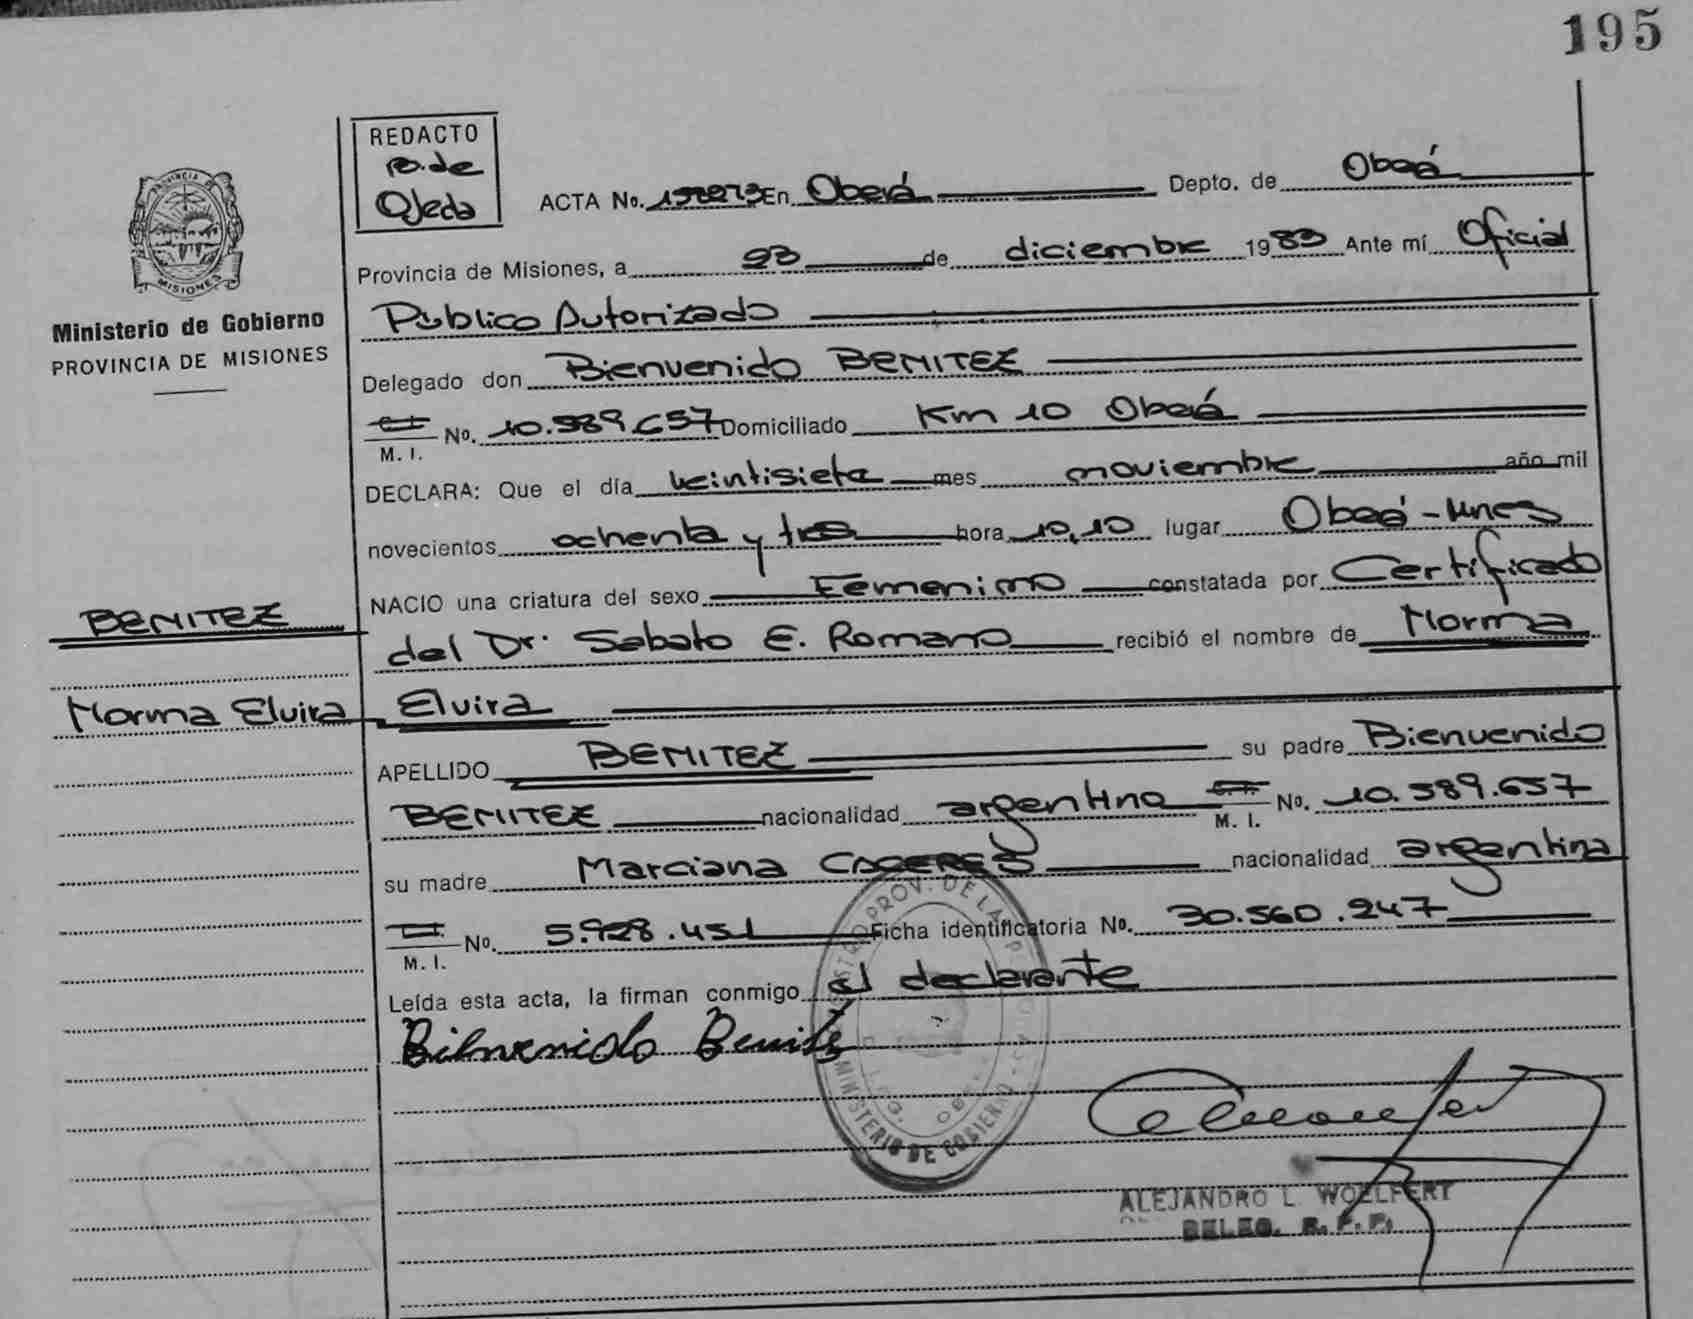 195
REDACTO
B. de
Ojeda
ACTA No. En Oberá Depto. de Oberá
Provincia de Misiones, a 23 de diciembre 1983 Ante mí Oficial
Público Autorizado
Delegado don Bienvenido BENITEZ
C.I. M. I. No. 10.589.657 Domiciliado Km 10 Oberá
DECLARA: Que el día veintisiete mes noviembre año mil
novecientos ochenta y tres hora 10,10 lugar Oberá - Mnes
NACIO una criatura del sexo Femenino constatada por Certificado
del Dr. Sabato E. Romano recibió el nombre de Norma
Elvira
APELLIDO BENITEZ su padre Bienvenido
BENITEZ nacionalidad argentina M. I. No. 10.589.657
su madre Marciana CACERES nacionalidad argentina
M. I. No. 5.928.451 Ficha identificatoria No. 30.560.247
Leída esta acta, la firman conmigo el declarante
Bienvenido Benitez
ALEJANDRO L. WOELFERT
DELEG. R. P. P.
PROVINCIA DE
MISIONES
Ministerio de Gobierno
PROVINCIA DE MISIONES
BENITEZ
Norma Elvira
PROV. DE LA
MINISTERIO DE GOBIERNO